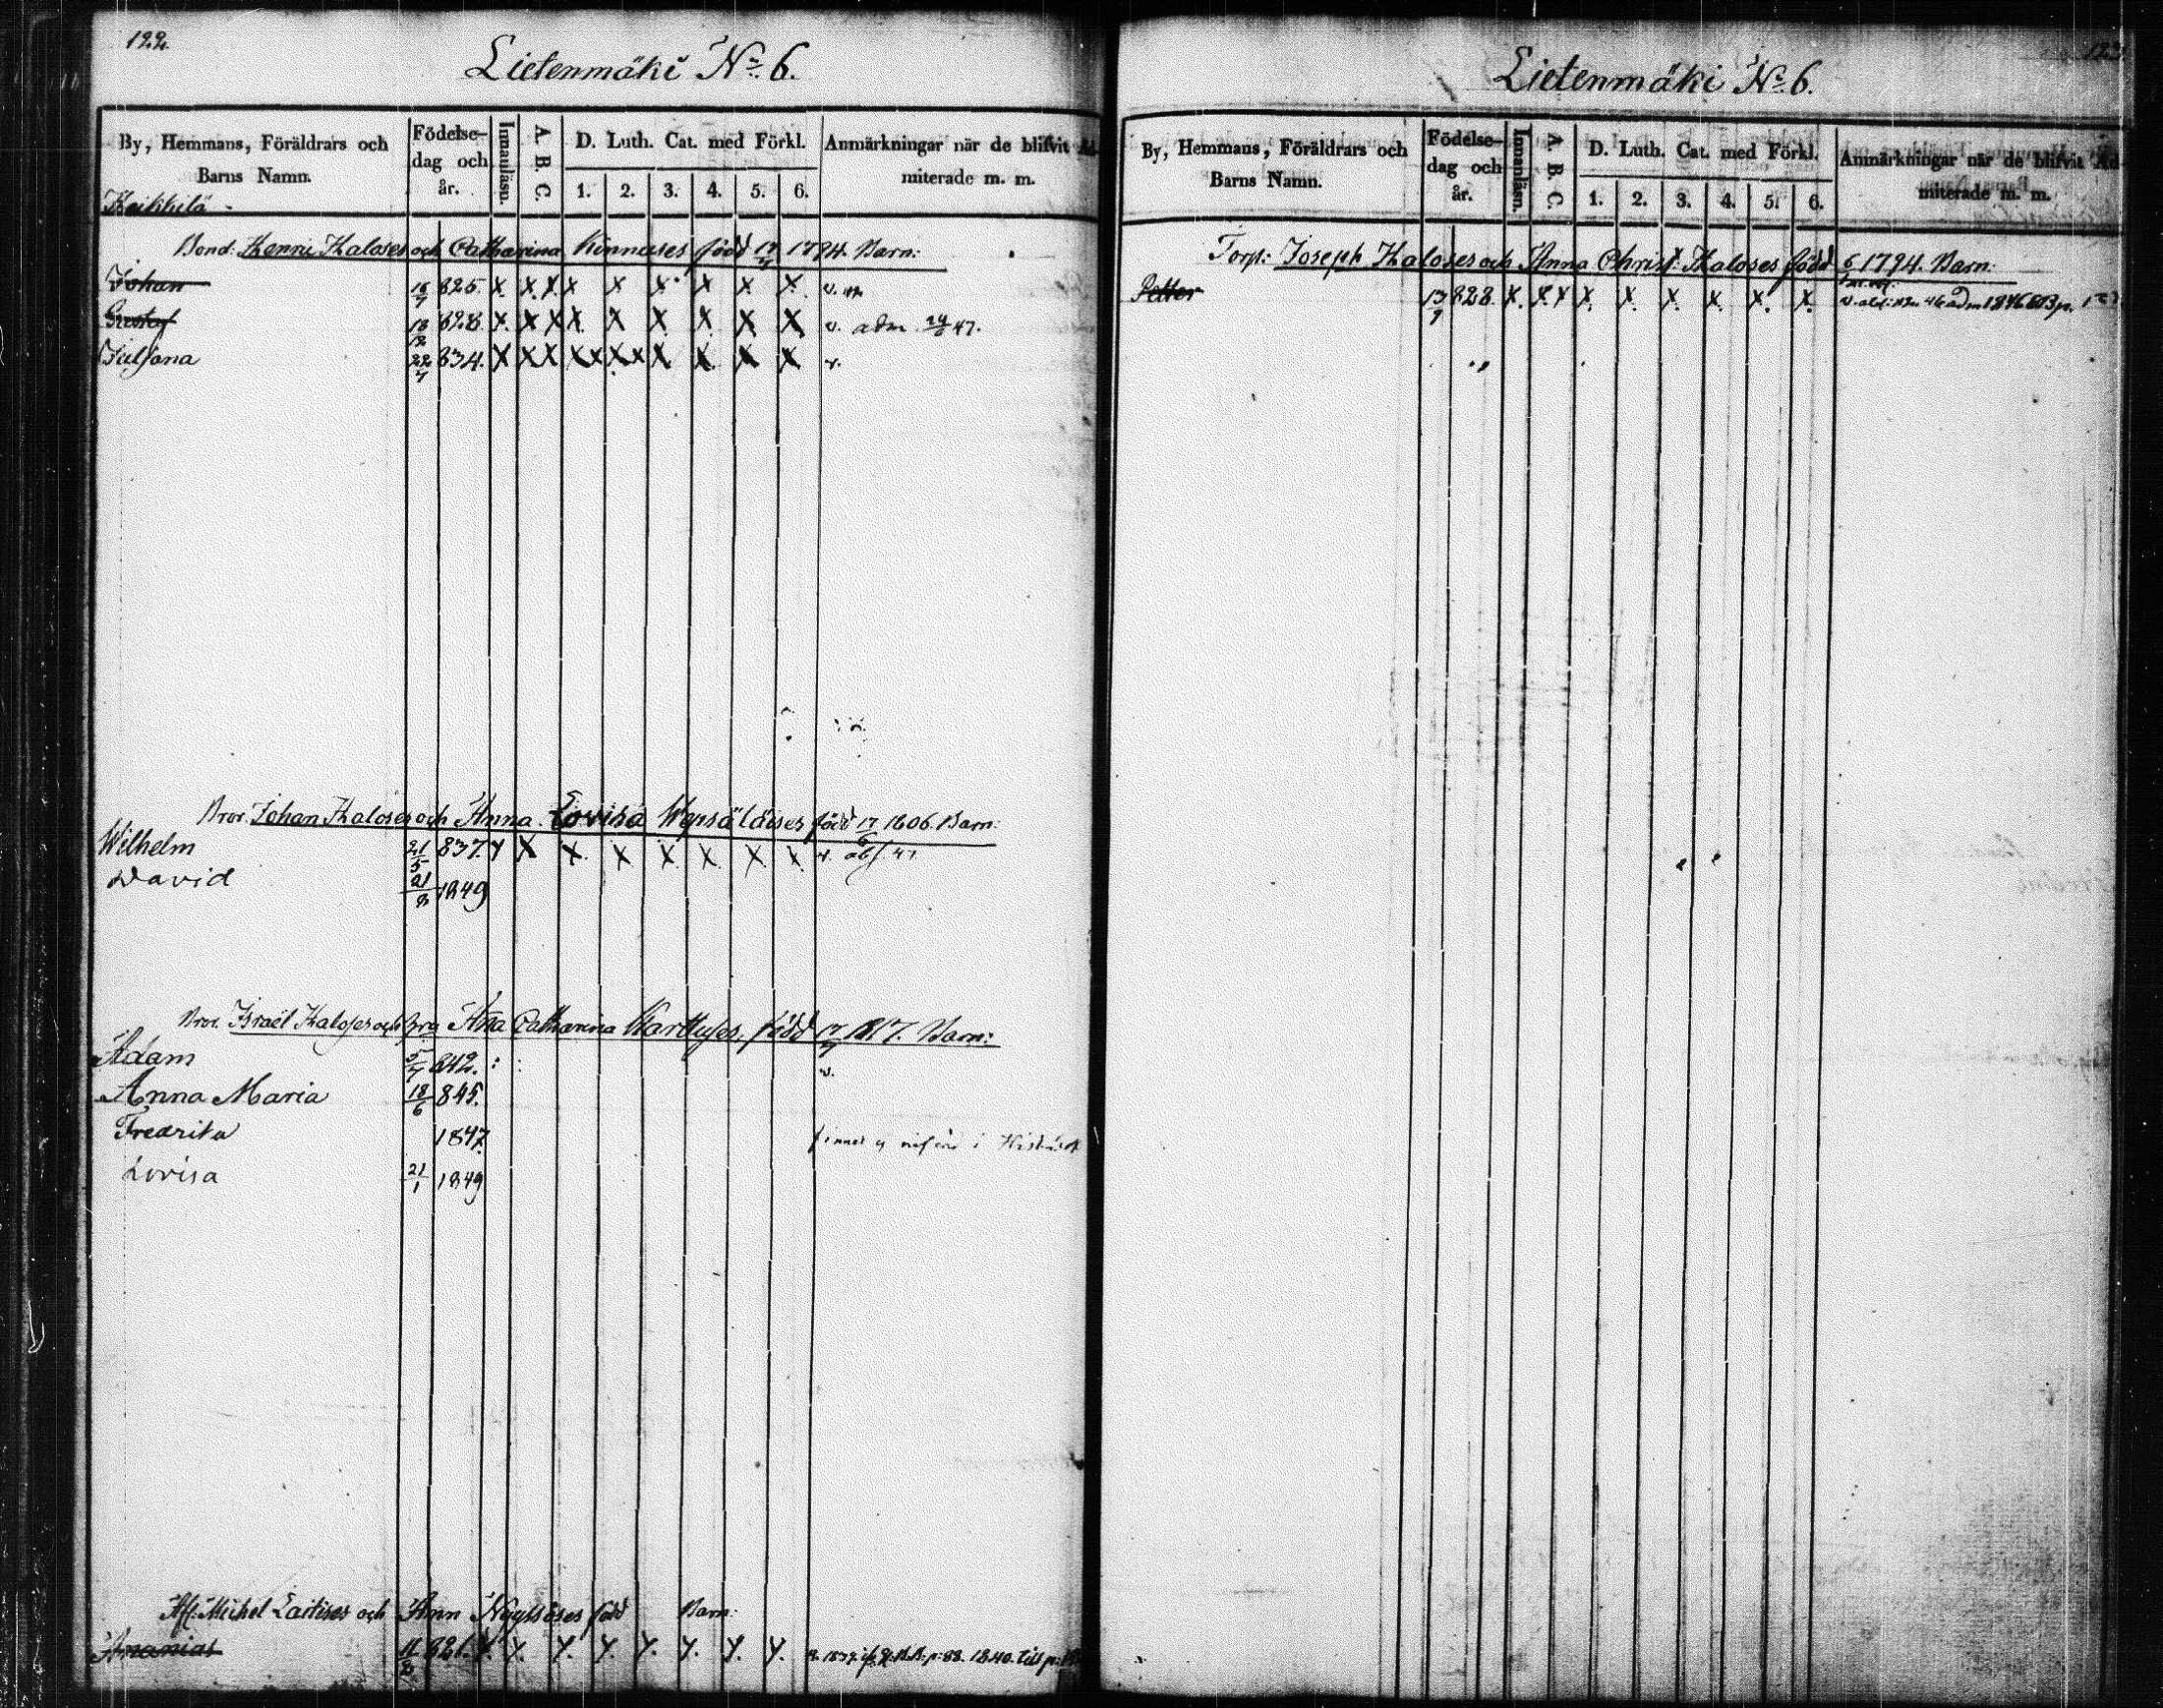 122.
Lietenmäki No 6.
By, Hemmans, Föräldrars och Barns Namn.
Födelse-dag och år.
Innanläsn.
A. B. C.
D. Luth. Cat. med Förkl.
1. 2. 3. 4. 5. 6.
Anmärkningar när de blifvit Ad-
miterade m. m.
Heikkilä
Bond: Henric Haloses och Catharina Kinnuses född 17 1794. Barn:
Johan 18/7 825. X. X. X. X X X. X X X. v.
Gustaf 18/12 828. X. X X X. X X X X X v. adm. 24/6 47.
Juliana 22/7 834. X X X X x X x X X. X X v.
Bror. Johan Haloses och Anna Lovisa Wepsäläises född 17/6 1806. Barn:
Wilhelm 21/5 837. X X X. X X. X. X. X. v.
David 21/8 1849
Bror. Israël Haloses och Anna Catharina Karttuses, född 17/7 1817. Barn:
Adam 5/7 842. v.
Anna Maria 18/6 845.
Fredrika 1847.
finnes ej
Lovisa 21/1 1849
Michel Laitises och Ann Nyyssöses född Barn:
Ananias 11/8 821. Y. Y. Y. Y. Y. Y. Y. Y. p: 88. 1840. till p:
Lietenmäki No 6.
By, Hemmans, Föräldrars och Barns Namn.
Födelse-dag och år.
Innanläsn.
A. B. C.
D. Luth. Cat. med Förkl.
1. 2. 3. 4. 5. 6.
Anmärkningar när de blifvit Ad-
miterade m. m.
Torp: Joseph Haloses och Anna Christ: Haloses född 6 1794. Barn:
Petter 13/9 828. X. X. X X. X. X. X. X. X. adm 1846